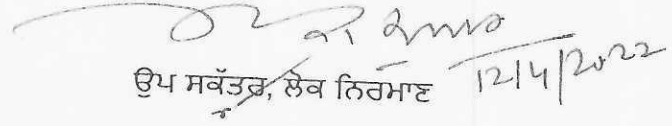 ਉਪ ਸਕੱਤਰ, ਲੋਕ ਨਿਰਮਾਣ 12/4/2022